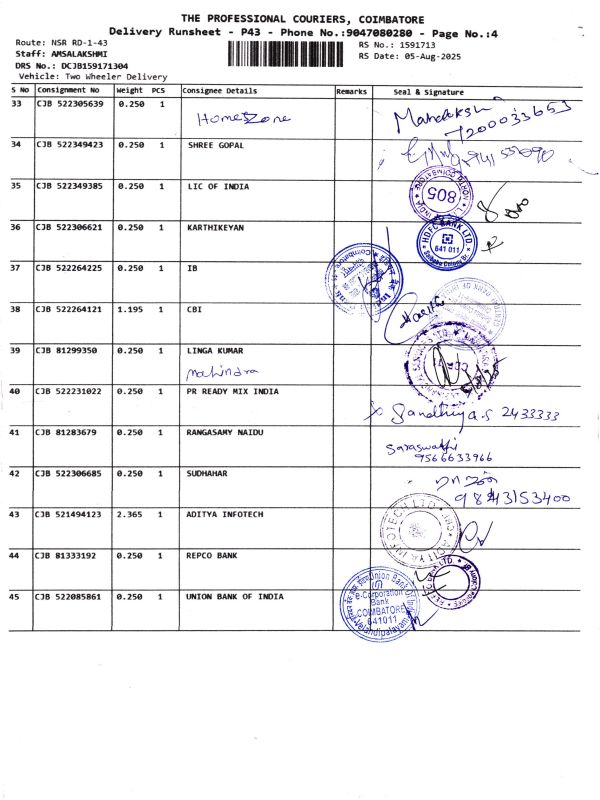 THE PROFESSIONAL COURIERS, COIMBATORE
Delivery Runsheet - P43 - Phone No.:9047080280 - Page No.:4
Route: NSR RD-1-43
RS No.: 1591713
Staff: AMSALAKSHMI
RS Date: 05-Aug-2025
DRS No.: DCJB159171304
Vehicle: Two Wheeler Delivery
S No Consignment No Weight PCS Consignee Details Remarks Seal & Signature
33 CJB 522305639 0.250 1
HomeZone
7200033653
34 CJB 522349423 0.250 1 SHREE GOPAL
35 CJB 522349385 0.250 1 LIC OF INDIA
805
36 CJB 522306621 0.250 1 KARTHIKEYAN
HDFC BANK LTD.
641 011
37 CJB 522264225 0.250 1 IB
38 CJB 522264121 1.195 1 CBI
39 CJB 81299350 0.250 1 LINGA KUMAR
mahindra
40 CJB 522231022 0.250 1 PR READY MIX INDIA
Sandhiya.s 2433333
41 CJB 81283679 0.250 1 RANGASAMY NAIDU
Saraswathi
9566633966
42 CJB 522306685 0.250 1 SUDHAHAR
9843153400
43 CJB 521494123 2.365 1 ADITYA INFOTECH
ADITYA INFOTECH LTD.
44 CJB 81333192 0.250 1 REPCO BANK
45 CJB 522085861 0.250 1 UNION BANK OF INDIA
Union Bank
e-Corporation
Bank
COIMBATORE
641011
Velandipalayam